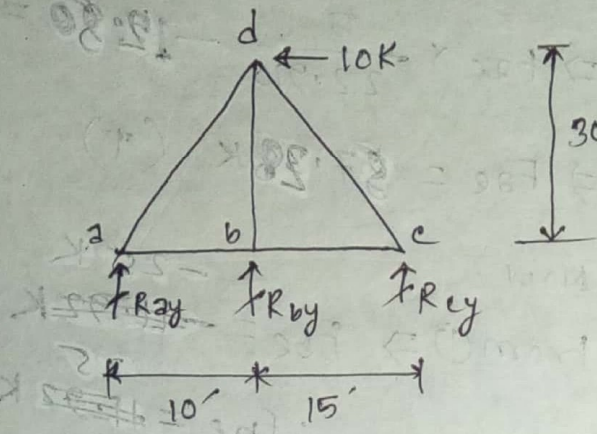 d
10K
30
a b c
Ray Rby Rcy
10' 15'